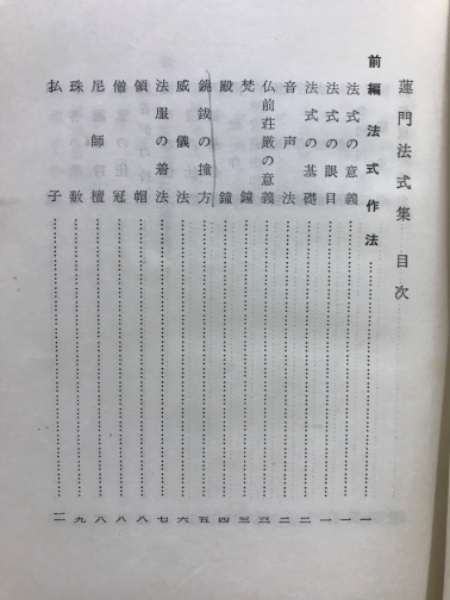 蓮門法式集 目次
前編 法式作法 一
法式の意義 一
法式の眼目 一
法式の基礎 二
音声法 二
仏前荘厳の意義 三
梵鐘 三
殿鐘 四
鐃鈸の撞方 五
威儀法 六
法服の着法 七
領帽 八
僧冠 八
尼師壇 八
珠数 九
払子